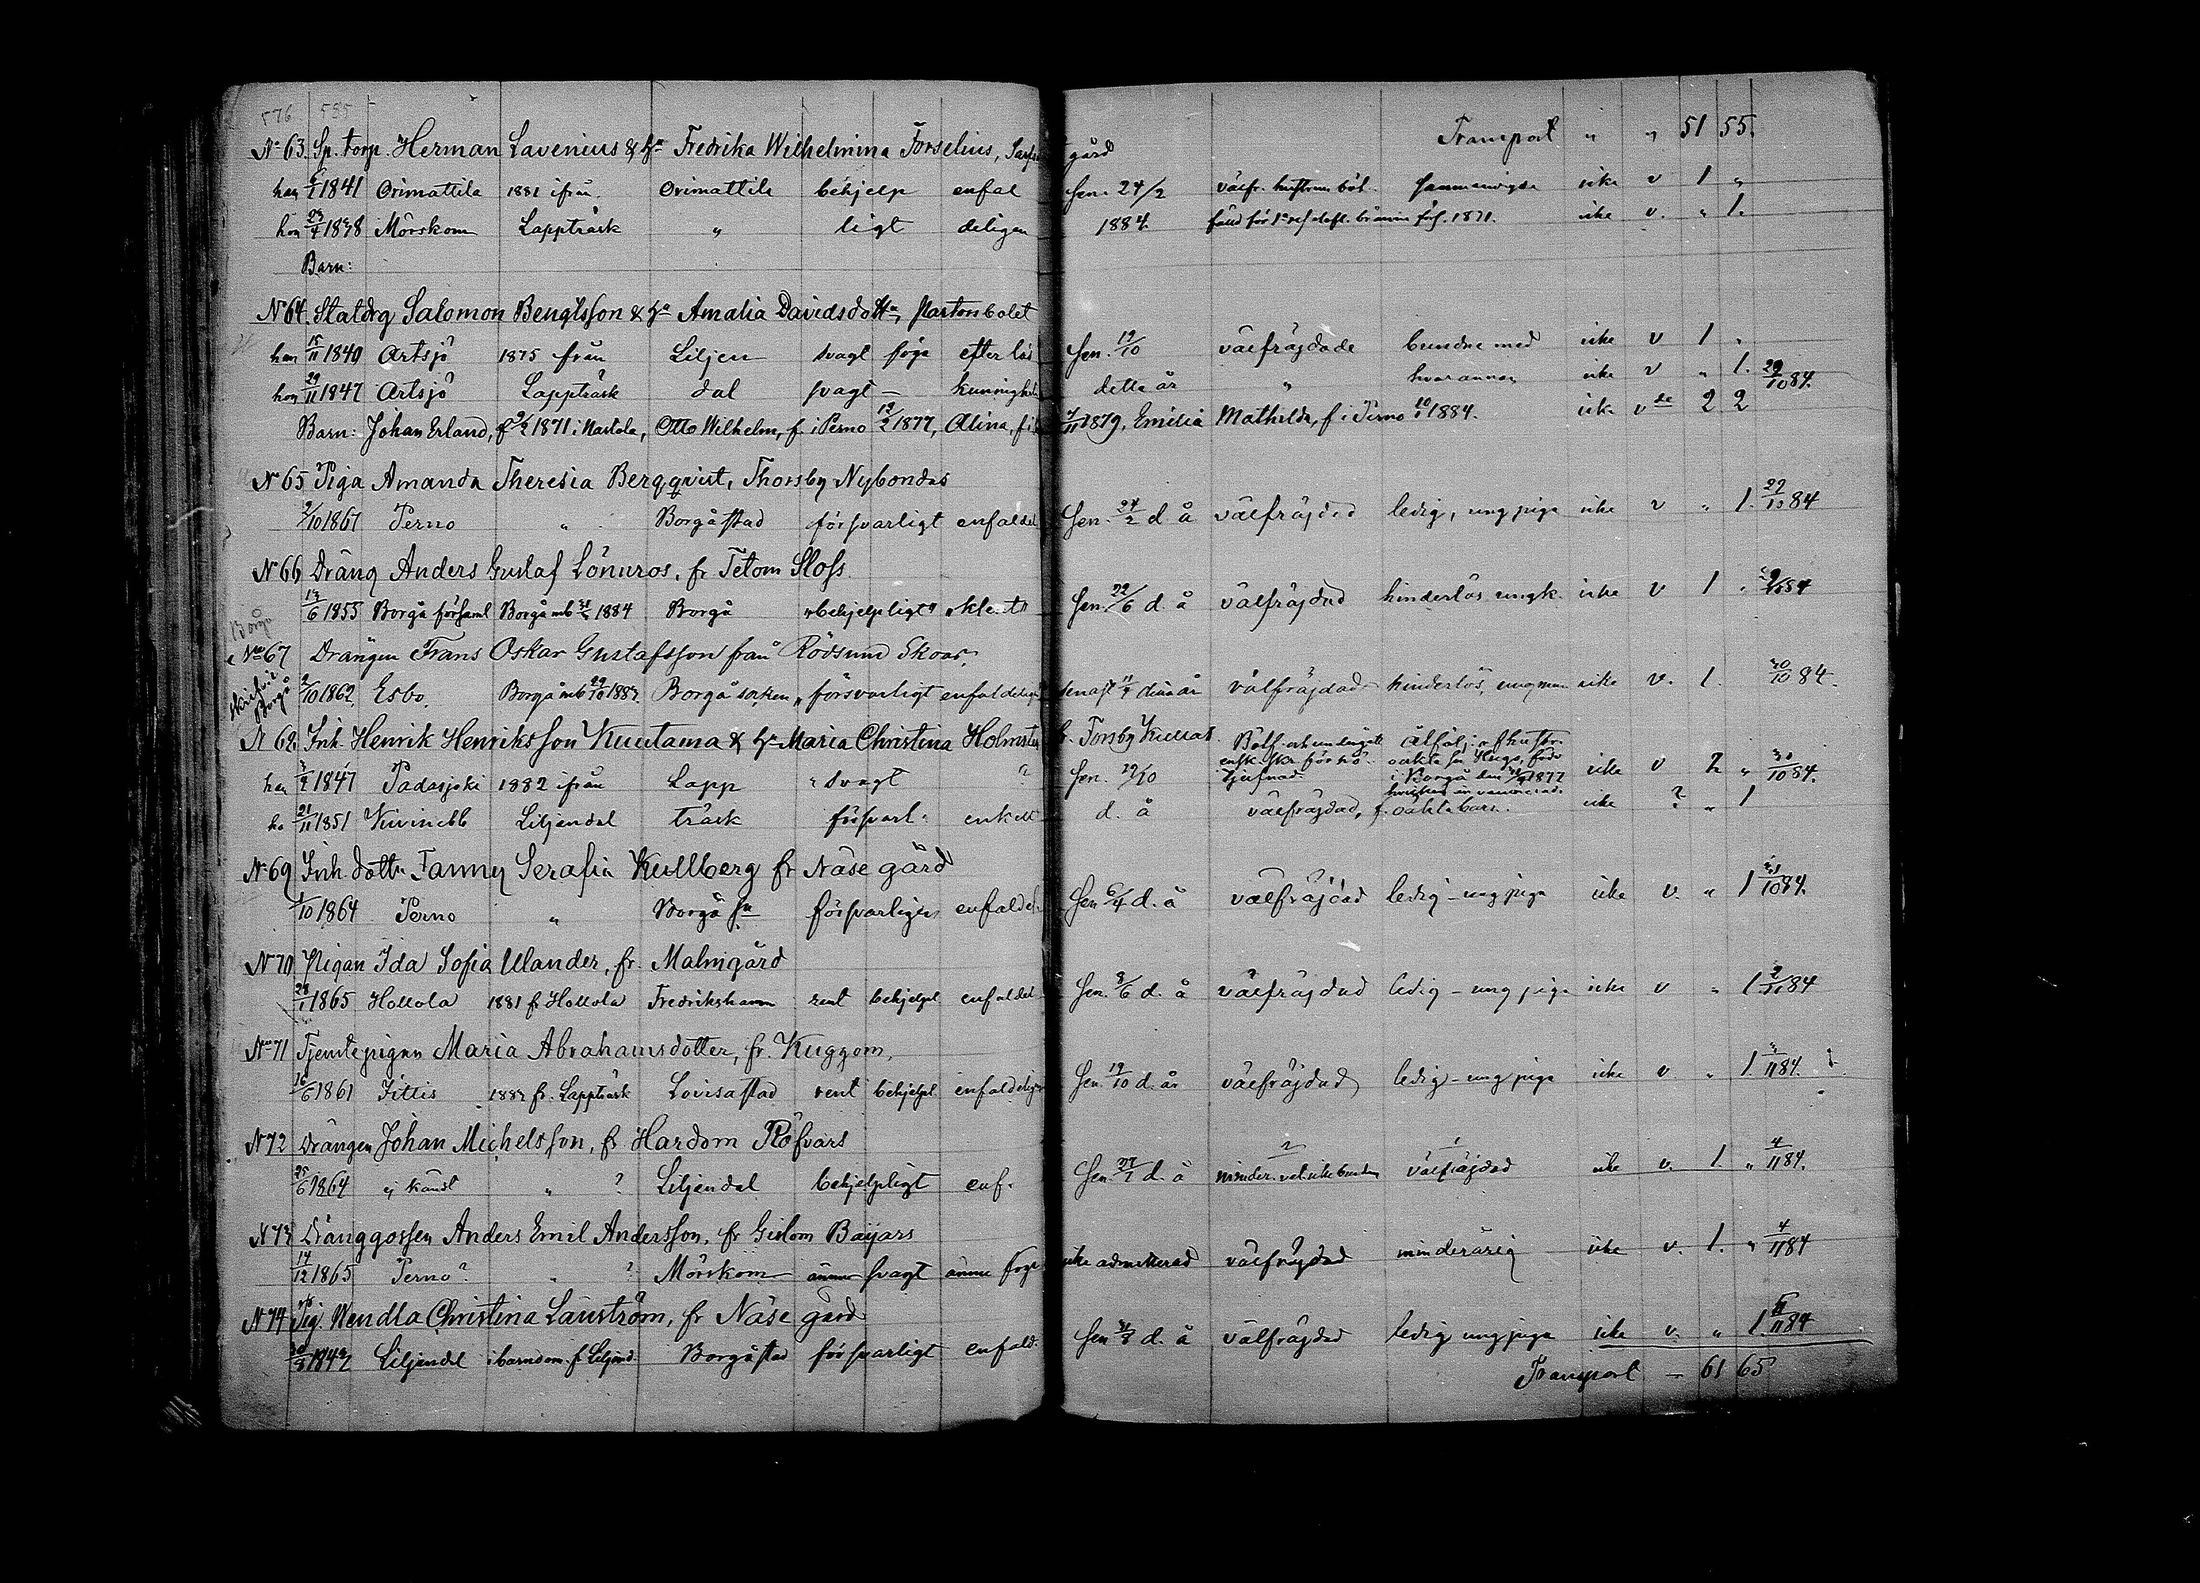 576 585
Transport " " 51 55.
No 63. Sp. torp. Herman Lavenius & Hu Fredrika Wilhelmina Forselius, gård
han 1841 Orimattila 1881 ifrån Orimattila behjelp enfal Sen. 24/2 välfr. icke v 1 "
hon 23/4 1838 Mörskom Lappträsk " ligt deligen 1884. 1871. icke v. " 1.
Barn:
No 64. Statdrg Salomon Bengtsson & Hu Amalia Davidsdottr, Martonbolet
han 15/11 1840 Artsjö 1875 från Liljen svagt föga efter Sen. 19/10 välfräjdade bundne med icke v 1 "
hon 29/11 1847 Artsjö Lappträsk dal svagt — kunnighet detta år " hvarannan icke v " 1. 29/10 84.
Barn: Johan Erland, f 1871 i Nastola, Otto Wilhelm, f. i Perno 12/2 1877, Alina, f. 1879, Emilia Mathilda, f i Perno 1884. ick. v 2 2
No 65 Piga Amanda Theresia Bergqvist, Thorsby Nybondas
9/10 1867 Perno " Borgå stad försvarligt enfaldel Sen. 24/2 d. å välfräjdad ledig, ung piga icke v " 1. 84
No 66 Dräng Anders Gustaf Lönnros, fr Tetom Sloss
13/6 1855 Borgå församl Borgå mb 1884 Borgå "behjelpligt" "klent" Sen. 22/6 d. å välfräjdad hinderlös ungk. icke v 1 " 84
Borgå
No 67 Drängen Frans Oskar Gustafsson från Rödsund Skoas.
Borgå
2/10 1862 Esbo. Borgå mb Borgå socken försvarligt enfaldelig senast detta år välfräjdad hinderlös, ungman icke v. 1. 30/10 84.
N 68 Inh. Henrik Henriksson Kuutama & Hu Maria Christina fr. Forsby
han 1847 Padasjoki 1882 ifrån Lapp " svagt ? Sen. 19/10 Hugo, född i Borgå den 1877 icke v 2 " 30/10 84.
ho 21/11 1851 Kivinebb Liljendal träsk försvarl. enkelt d. å välfräjdad, f. oäkta barn. icke ? " 1
No 69 Inh. dottr Fanny Serafia Kullberg fr Näse gård
1/10 1864 Perno " Borgå sn försvarligen enfaldel. Sen 6/4 d. å välfräjdad ledig - ung piga icke v. " 1 31/10 84.
N 70 Pigan Ida Sofia Ulander, fr. Malmgård
28/1 1865 Hollola 1881 fr Hollola Fredrikshamn rent behjelpl enfaldel Sen. 8/6 d. å välfräjdad ledig - ung piga icke v " 1. 2/11 84
No 71 Tjenstepigan Maria Abrahamsdotter, fr. Kuggom.
16/6 1861 Jittis fr. Lappträsk Lovisa stad rent behjelpl enfaldelig Sen 19/10 d. år välfräjdad ledig - ung piga icke v " 1 3/11 84.
N 72 Drängen Johan Michelsson, fr Hardom Röfvars
25/6 1864 ej känd " ? Liljendal behjelpligt enf. Sen d. å välfräjdad icke v. 1. " 4/11 84.
N 73 Dränggossen Anders Emil Andersson, fr Gislom Bajars
14/12 1865 Perno? " ? Mörskom ännu svagt ännu föga icke admitterad välfräjdad minderårig icke v. 1. " 4/11 84
N 74 Pig. Wendla Christina Lauström, fr Näse gård
Liljendl i barndom fr Liljend. Borgå stad försvarligt enfald. Sen d. å välfräjdad ledig ung piga icke v. " 1. 84
Transport — 61 65